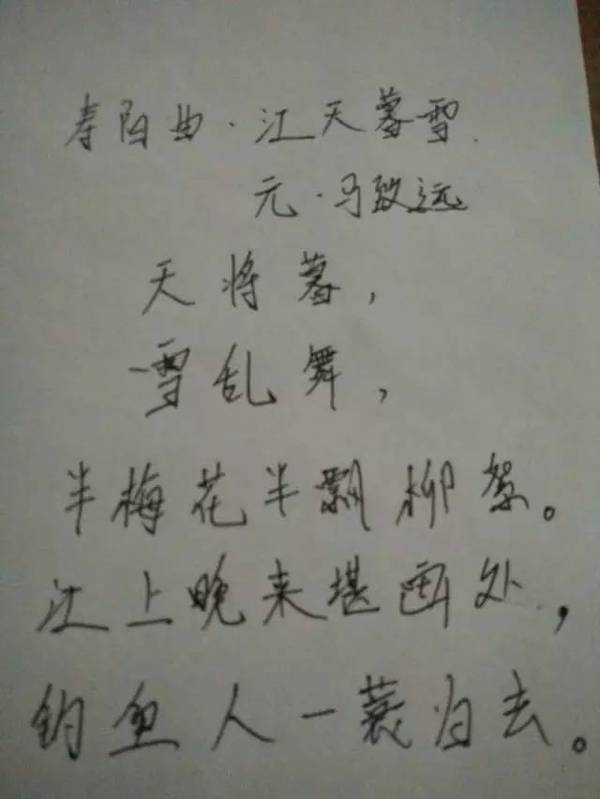 寿阳曲·江天暮雪
元·马致远
天将暮，
雪乱舞，
半梅花半飘柳絮。
江上晚来堪画处，
钓鱼人一蓑归去。